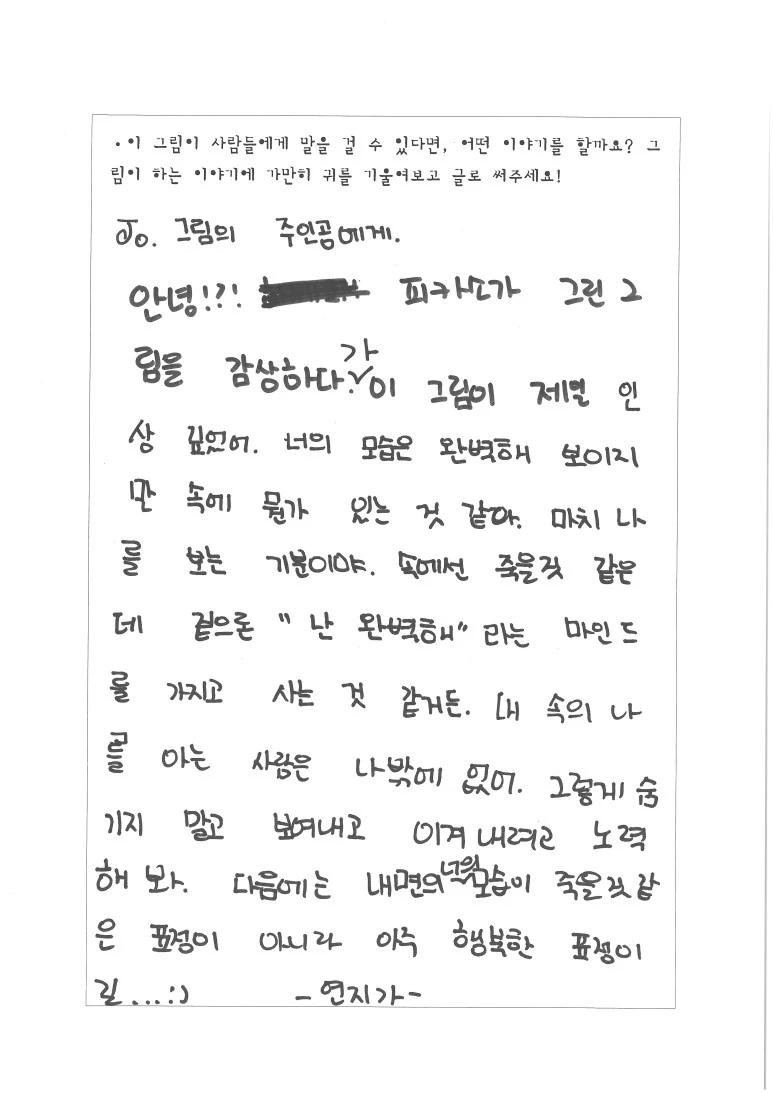 · 이 그림이 사람들에게 말을 걸 수 있다면, 어떤 이야기를 할까요? 그
림이 하는 이야기에 가만히 귀를 기울여보고 글로 써주세요!
To. 그림의 주인공에게.
안녕!?! 피카소가 그린 그
림을 감상하다가 이 그림이 제벌 인
상 깊었어. 너의 모습은 완벽해 보이지
만 속에 뭔가 있는 것 같아. 마치 나
를 보는 기분이야. 속에선 죽을것 같은
데 겉으론 "난 완벽해"라는 마인드
를 가지고 사는 것 같거든. 내 속의 나
를 아는 사람은 나밖에 없어. 그렇게 숨
기지 말고 보여내고 이겨내려고 노력
해 봐. 다음에는 내면의 너의 모습이 죽을것 같
은 표정이 아니라 아주 행복한 표정이
길...:)   -연지가-